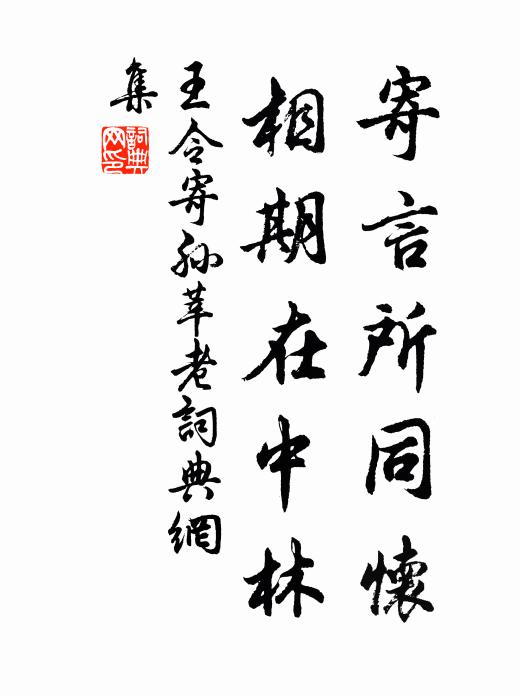 寄言所同懷
相期在中林
王令寄孫莘老詞典網
集
詞典
网印